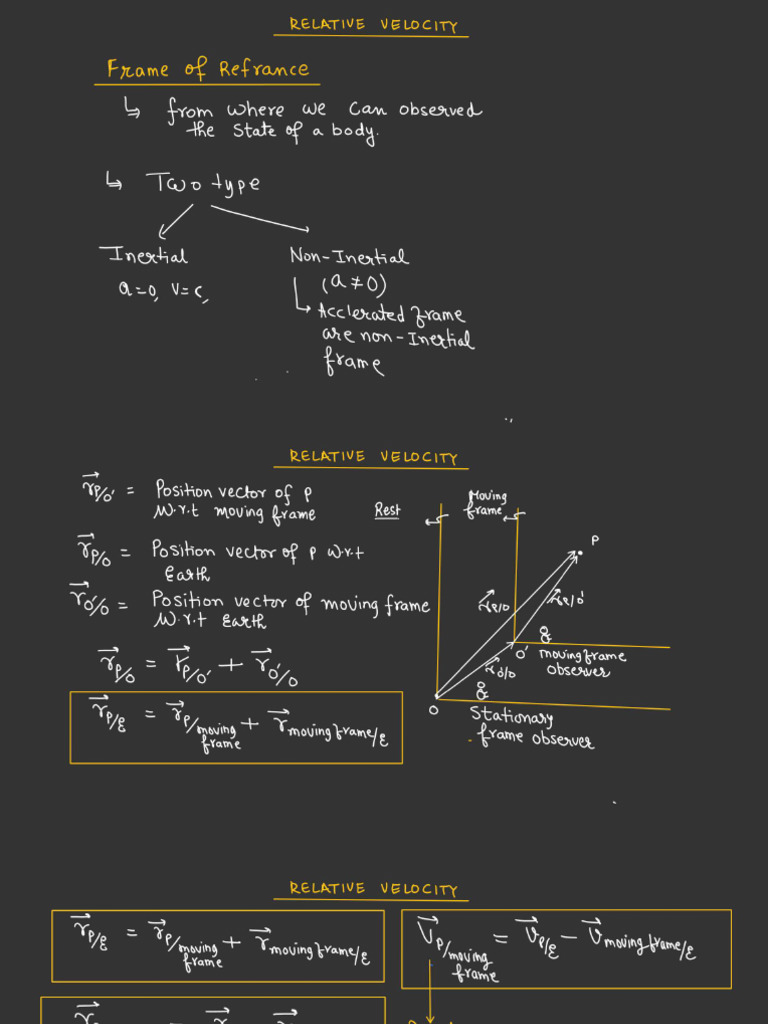 RELATIVE VELOCITY
Frame of Refrance
↳ from where we can observed
the state of a body.
↳ Two type
Inertial
a=0, v=c,
Non-Inertial
(a≠0)
↳ Acclerated frame
are non-Inertial
frame
RELATIVE VELOCITY
r⃗P/O' = Position vector of P
W.r.t moving frame
r⃗P/O = Position vector of P w.r.t
Earth
r⃗O'/O = Position vector of moving frame
W.r.t Earth
r⃗P/O = r⃗P/O' + r⃗O'/O
r⃗P/E = r⃗P/moving frame + r⃗moving frame/E
Rest
Moving
frame
P
r⃗P/O
r⃗P/O'
O'
moving frame
observer
r⃗O'/O
O
Stationary
frame observer
RELATIVE VELOCITY
r⃗P/E = r⃗P/moving frame + r⃗moving frame/E
V⃗P/moving frame = V⃗P/E − V⃗moving frame/E